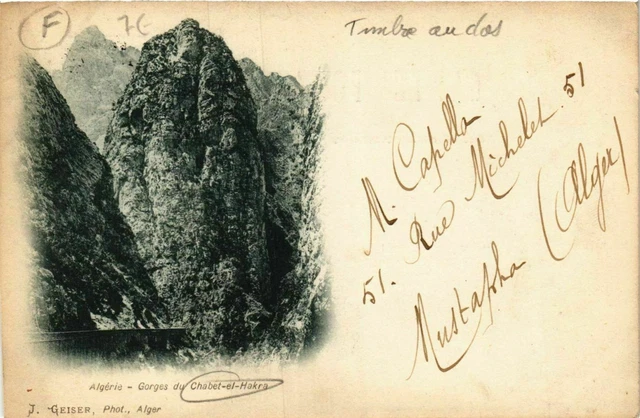 F
7€
Timbre au dos
M. Capella
51. Rue Michelet. 51
Mustapha (Alger)
Algérie - Gorges du Chabet-el-Hakra
J. GEISER, Phot., Alger